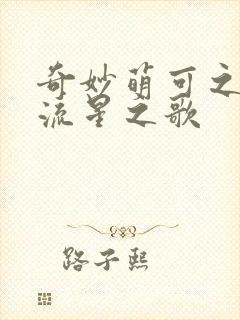 奇妙萌可之
流星之歌
路子熙